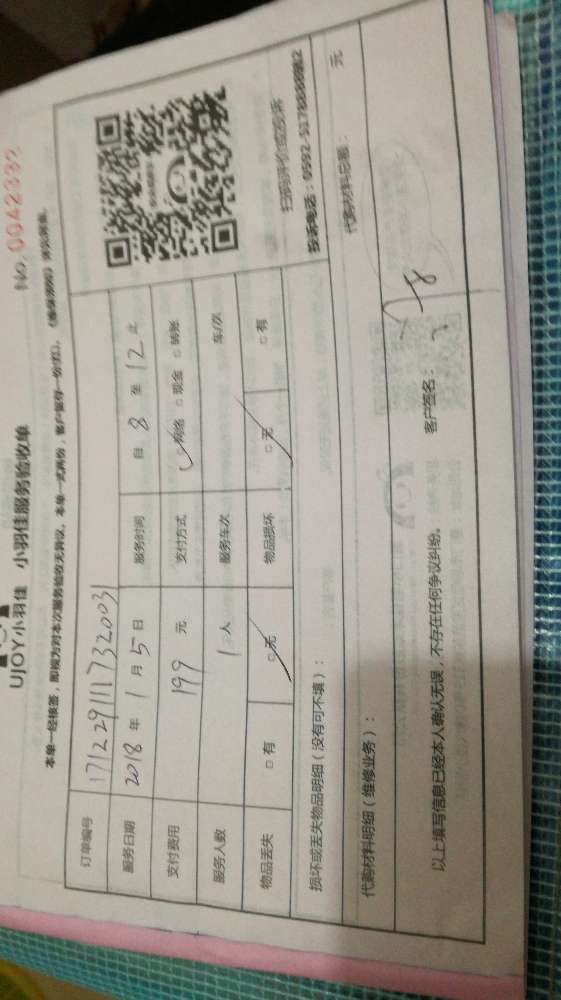 No.0042392
UJOY小羽佳 小羽佳服务验收单
本单一经接签，即视为对本次服务验收无异议。本单一式两份，客户留存一份(红)。
订单编号 171229111732003
服务日期 2018年1月5日 服务时间 自8至12止
支付费用 199元 支付方式 □网络 □现金 □转账
服务人数 1人 服务车次 车/次
物品丢失 □有 □无 物品损坏 □无 □有
扫码评价或投诉
损坏或丢失物品明细（没有可不填）：
代购材料明细（维修业务）： 代购材料总额： 元
以上填写信息已经本人确认无误，不存在任何争议纠纷。 客户签名：